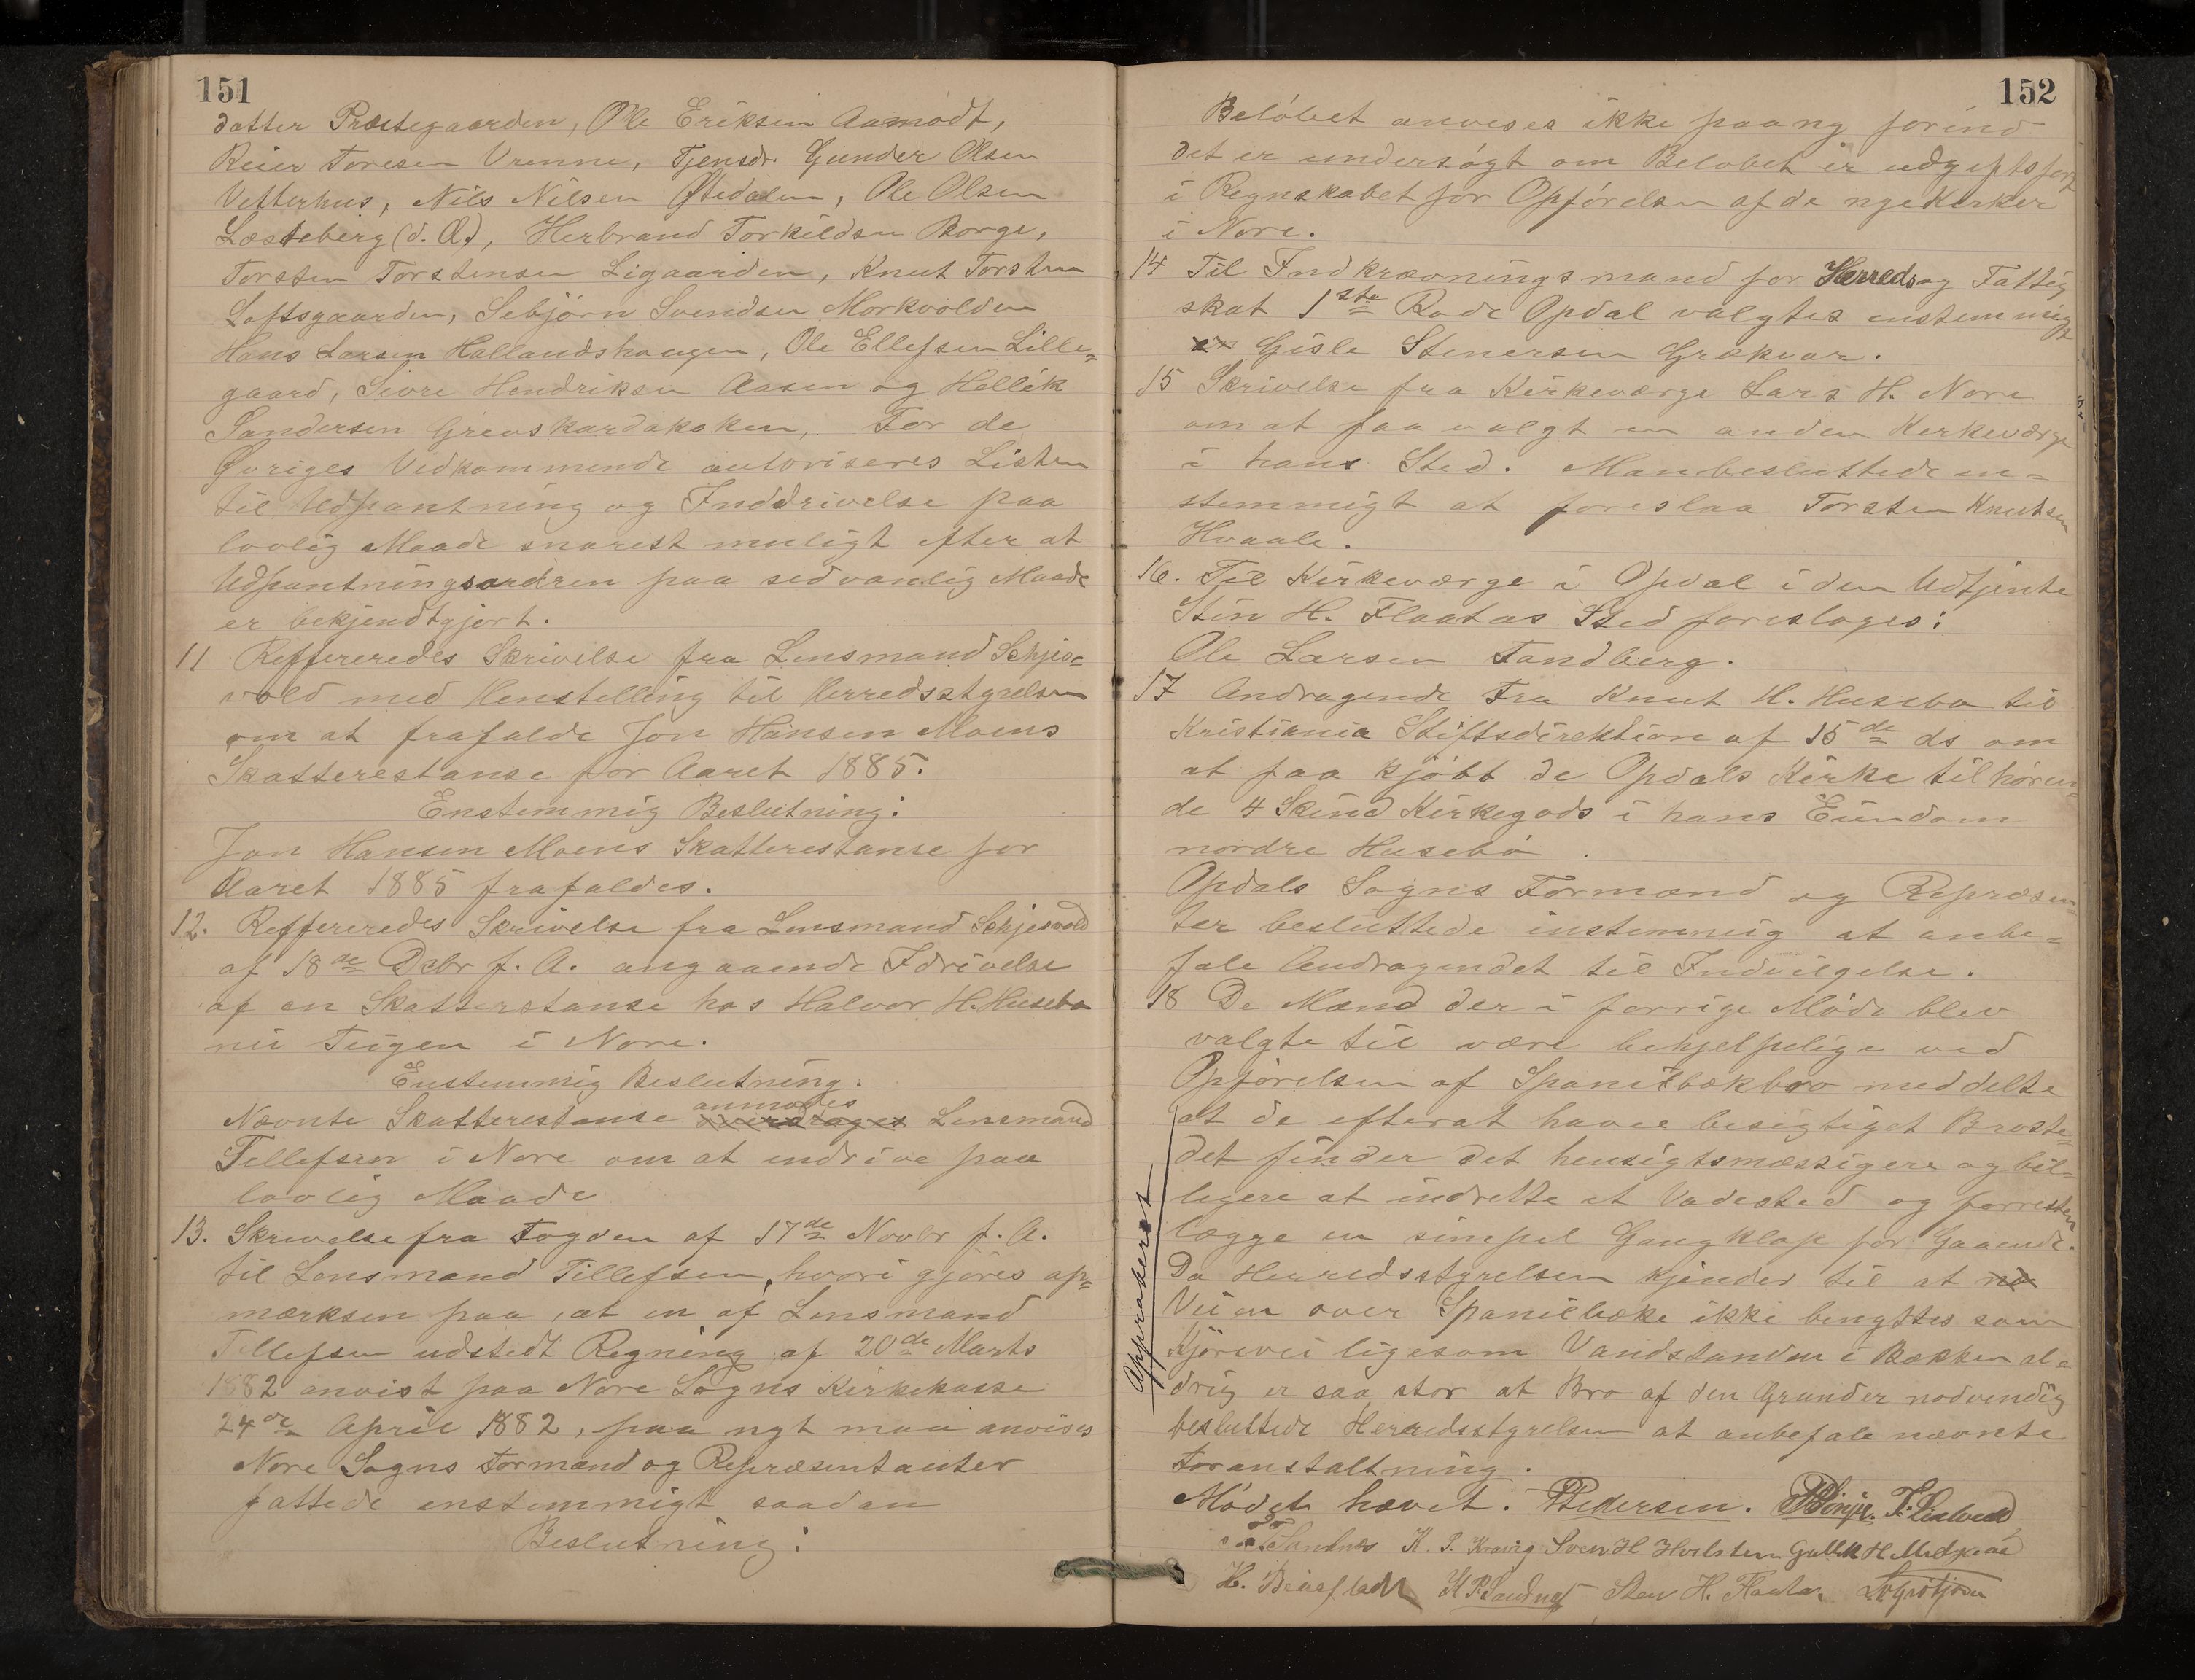 151
datter Præstegaarden, Ole Eriksen Aamodt,
Reier Toresen Vrenne, Tjensdr. Gunder Olsen
Vetterhus, Nils Nilsen Østedalen, Ole Olsen
Læsteberg (d. Æ.), Herbrand Torkildsen Borge,
Torsten Torstensen Ligaarden, Knut Torsten
Loftsgaarden, Sebjörn Svendsen Morkvolden
Hans Larsen Hallandshaugen, Ole Ellefsen Lille=
gaard, Sivre Hendriksen Aasen og Hellik
Sandersen Grevskardakoken, For de
Øvriges Vedkommende autoriseres Listen
til Udpantning og Inddrivelse paa
lovlig Maade snarest muligt efter at
Udpantningsordren paa sedvanlig Maade
er bekjendtgjort.
11 Reffereredes Skrivelse fra Lensmand Schjes=
vold med Henstilling til Herredsstyrelsen
om at frafalde Jon Hansen Moens
Skatterestanse for Aaret 1885.
Enstemmig Beslutning:
Jon Hansen Moens Skatterestanse for
Aaret 1885 frafaldes.
12. Reffereredes Skrivelse fra Lensmand Schjesvold
af 18de Debr f. A. angaaende Idrivelse
af en Skatterstanse hos Halvor H. Husebø
nu Tiigen i Nore.
Enstemmig Beslutning.
Nævnte Skatterestanse overdrages anmodes Lensmand
Tellefsen i Nore om at indrive paa
lovlig Maade
13. Skrivelse fra Fogden af 17de Novbr f. A.
til Lensmand Tillefsen, hvori gjöres op=
mærksen paa, at en af Lensmand
Tillefsen udstedt Regning af 20de Marts
1882 anvist paa Nore Sogns Kirkekasse
24de April 1882, paa nyt maa anvises
Nore Sogns Formænd og Repræsentanter
fattede enstemmigt saadan
Beslutning:
152
Belöbet anvises ikke paany förind
det er undersögt om Belobet er udgiftsfört
i Regnskabet for Opförelsen af de nye Kirker
i Nore.
14 Til Indkrævningsmand for Herreds og Fattig
skat 1ste Rode Opdal valgtes enstemmigt
Gisle Stenersen Grækvar.
15 Skrivelse fra Kirkeværge Lars H. Nore
om at faa valgt en anden Kirkeværge
i hans Sted. Man besluttede en=
stemmigt at foreslaa Torsten Knutsen
Hvaale.
16. Til Kirkeværge i Opdal i den Udtjente
Sten H. Flaatas Sted foresloges:
Ole Larsen Tandberg.
17 Andragende Fra Knut H. Husebø til
Kristiania Stiftsdirektion af 15de ds om
at faa kjöbt de Opdals Kirke tilhören=
de 4 Skind Kirkegods i hans Eiendom
nordre Husebö.
Opdals Sogns Formænd og Repræsen=
ter besluttede enstemmig at anbe=
fale Andragendet til Indvilgelse.
18 De Mænd der i forrige Möde blev
valgte til være behjelpelige ved
Opförelsen af Spanilbækbro meddelte
at de efterat have besigtiget Broste=
det finder det hensigtsmæssigere og bil=
ligere at indrette et Vadested og forresten
lægge en simpel Gangklop for Gaaende.
Da Herredsstyrelsen kjender til at
Veien over Spanilbæke ikke benyttes som
Kjörevei ligesom Vandstanden i Bækken al=
drig er saa stor at Bro af den Grunder nodvendig
besluttede Herredsstyrelsen at anbefale nævnte
Foranstaltning.
Approberet
Mödet hævet. P Pedersen. Bönje. T. Lislerud
T Sandnes K. P. Kravig Sven H Hvilsten Gullik H Medgaa
H. Beiasfladt K P Sandnes Sten H. Flaata.